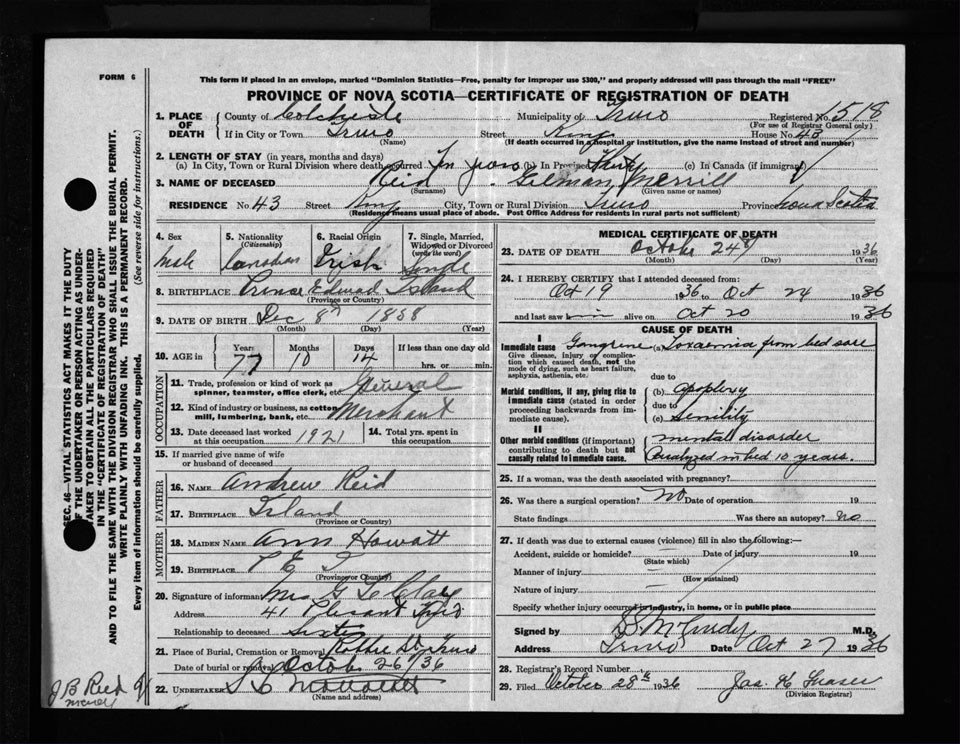 FORM 6
This form if placed in an envelope, marked "Dominion Statistics—Free, penalty for improper use $300," and properly addressed will pass through the mail "FREE"
PROVINCE OF NOVA SCOTIA—CERTIFICATE OF REGISTRATION OF DEATH
1. PLACE OF DEATH
County of Colchester Municipality of Truro Registered No. 1518
(For use of Registrar General only)
If in City or Town Truro Street King House No. 43
(Name) (If death occurred in a hospital or institution, give the name instead of street and number)
2. LENGTH OF STAY (in years, months and days)
(a) In City, Town or Rural Division where death occurred Ten years (b) In Province Thirty (c) In Canada (if immigrant)
3. NAME OF DECEASED Reid Gilman Merrill
(Surname) (Given name or names)
RESIDENCE No. 43 Street King City, Town or Rural Division Truro Province Nova Scotia
(Residence means usual place of abode. Post Office Address for residents in rural parts not sufficient)
4. Sex 5. Nationality (Citizenship) 6. Racial Origin 7. Single, Married, Widowed or Divorced (write the word)
Male Canadian Irish Single
8. BIRTHPLACE Prince Edward Island
(Province or Country)
9. DATE OF BIRTH Dec 8th 1858
(Month) (Day) (Year)
10. AGE in Years Months Days If less than one day old
77 10 14 hrs. or min.
OCCUPATION
11. Trade, profession or kind of work as spinner, teamster, office clerk, etc. General
12. Kind of industry or business, as cotton mill, lumbering, bank, etc. Merchant
13. Date deceased last worked at this occupation 1921 14. Total yrs. spent in this occupation.
15. If married give name of wife or husband of deceased
FATHER
16. NAME Andrew Reid
17. BIRTHPLACE Island
(Province or Country)
MOTHER
18. MAIDEN NAME Ann Howatt
19. BIRTHPLACE P E I
(Province or Country)
20. Signature of informant Mrs G
Address 41 Pleasant Truro
Relationship to deceased Sister
21. Place of Burial, Cremation or Removal Robie St. Truro
Date of burial or removal October 26/36
22. UNDERTAKER
(Name and address)
MEDICAL CERTIFICATE OF DEATH
23. DATE OF DEATH October 24th 1936
(Month) (Day) (Year)
24. I HEREBY CERTIFY that I attended deceased from:
Oct 19 1936 to Oct 24 1936
and last saw him alive on Oct 20 1936
CAUSE OF DEATH
I
Immediate cause Gangrene (a) Toxaemia from bed sore
Give disease, injury or complication which caused death, not the mode of dying, such as heart failure, asphyxia, asthenia, etc.
due to
Morbid conditions, if any, giving rise to immediate cause (stated in order proceeding backwards from immediate cause).
(b) apoplexy
due to
(c) Senility
II
Other morbid conditions (if important) contributing to death but not causally related to immediate cause.
mental disorder
in bed 10 years.
25. If a woman, was the death associated with pregnancy?
26. Was there a surgical operation? No Date of operation 19
State findings Was there an autopsy? No
27. If death was due to external causes (violence) fill in also the following:—
Accident, suicide or homicide? Date of injury 19
(State which)
Manner of injury
(How sustained)
Nature of injury
Specify whether injury occurred in industry, in home, or in public place
Signed by McCurdy M.D.
Address Truro Date Oct 27 1936
28. Registrar's Record Number
29. Filed October 28th 1936 Jas. K Fraser
(Division Registrar)
SEC. 46—VITAL STATISTICS ACT MAKES IT THE DUTY
OF THE UNDERTAKER OR PERSON ACTING AS UNDERTAKER TO OBTAIN ALL THE PARTICULARS REQUIRED
IN THE "CERTIFICATE OF REGISTRATION OF DEATH"
AND TO FILE THE SAME WITH THE DIVISION REGISTRAR WHO SHALL ISSUE THE BURIAL PERMIT.
WRITE PLAINLY WITH UNFADING INK. THIS IS A PERMANENT RECORD.
Every item of information should be carefully supplied. (See reverse side for instructions.)
J B Reid